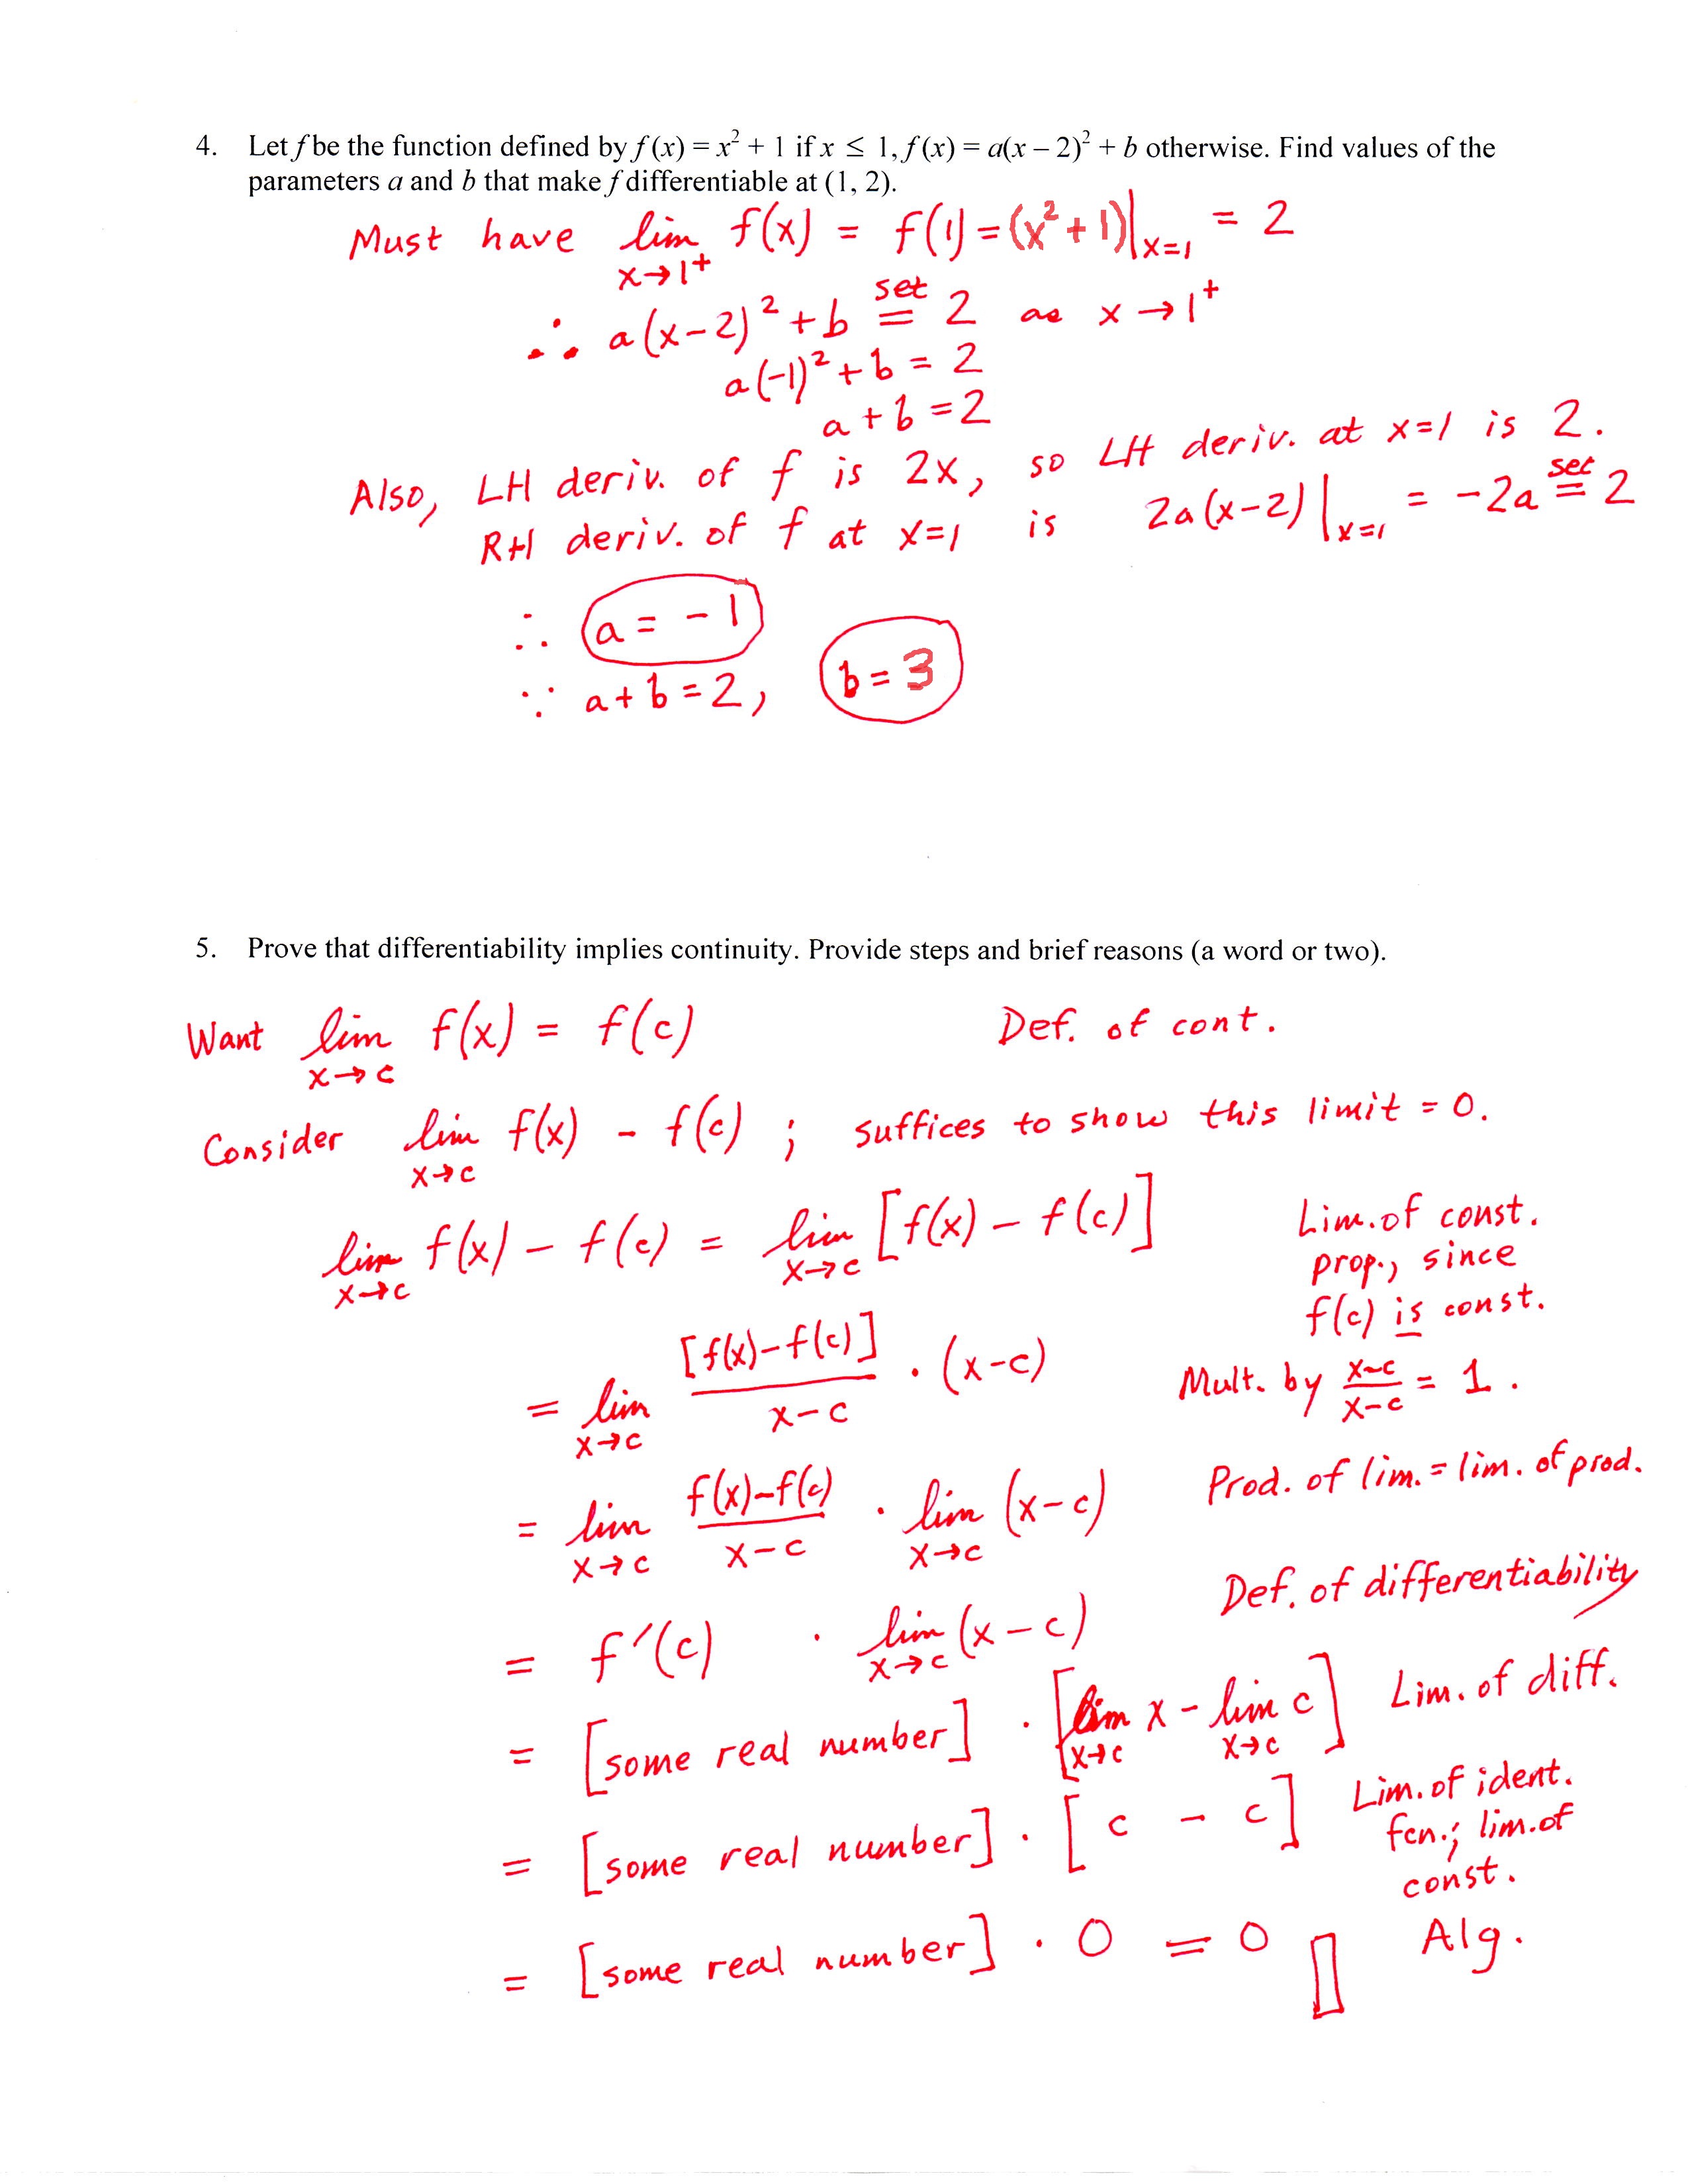 4. Let f be the function defined by f (x) = x² + 1 if x ≤ 1, f (x) = a(x – 2)² + b otherwise. Find values of the
parameters a and b that make f differentiable at (1, 2).
Must have lim x→1⁺ f(x) = f(1) = (x²+1)|x=1 = 2
∴ a(x-2)² + b = set 2 as x→1⁺
a(-1)² + b = 2
a + b = 2
Also, LH deriv. of f is 2x, so LH deriv. at x=1 is 2.
RH deriv. of f at x=1 is 2a(x-2)|x=1 = -2a = set 2
∴ a = -1
∵ a+b=2, b = 3
5. Prove that differentiability implies continuity. Provide steps and brief reasons (a word or two).
Want lim x→c f(x) = f(c) Def. of cont.
Consider lim x→c f(x) - f(c) ; suffices to show this limit = 0.
lim x→c f(x) - f(c) = lim x→c [f(x) - f(c)] Lim. of const.
prop., since
f(c) is const.
= lim x→c [f(x)-f(c)]/(x-c) · (x-c) Mult. by (x-c)/(x-c) = 1.
= lim x→c (f(x)-f(c))/(x-c) · lim x→c (x-c) Prod. of lim. = lim. of prod.
= f'(c) · lim x→c (x-c) Def. of differentiability
= [some real number] · [lim x→c x - lim x→c c] Lim. of diff.
= [some real number] · [c - c] Lim. of ident.
fcn.; lim. of
const.
= [some real number] · 0 = 0 ▯ Alg.